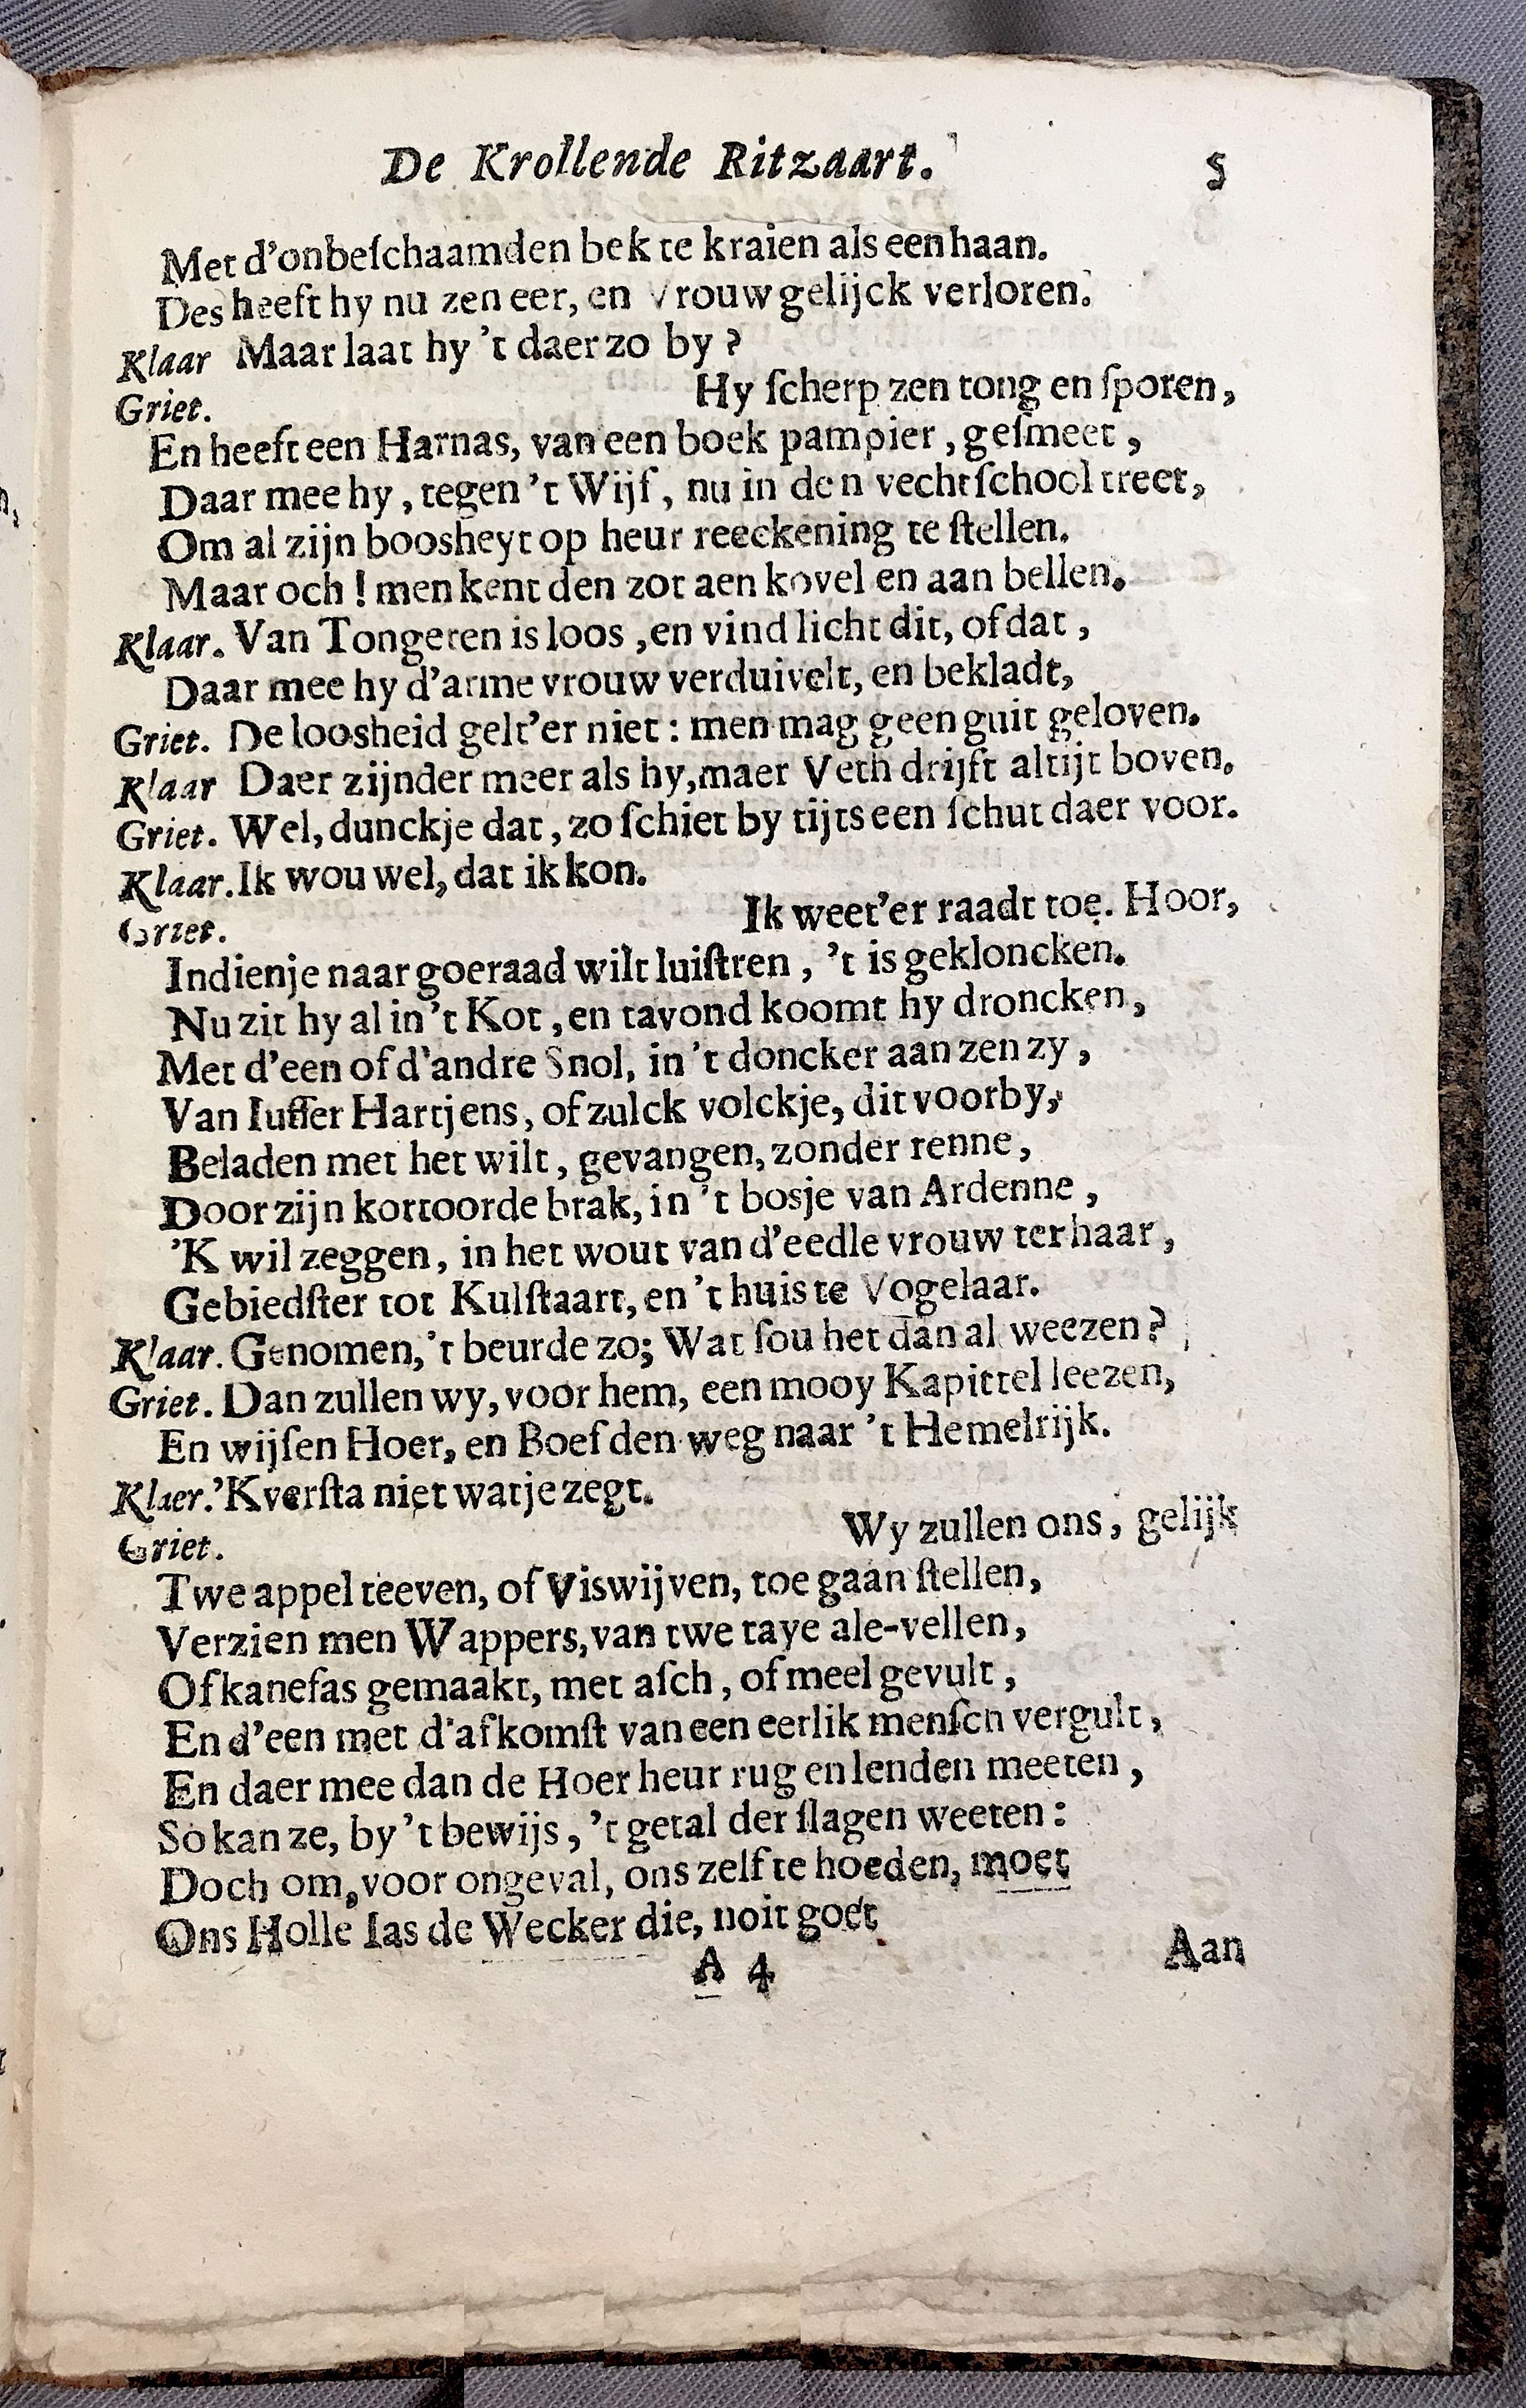 De Krollende Ritzaart. 5
Met d'onbeſchaamden bek te kraien als een haan.
Des heeft hy nu zen eer, en Vrouw gelijck verloren.
Klaar Maar laat hy 't daer zo by?
Hy ſcherp zen tong en ſporen,
Griet.
En heeft een Harnas, van een boek pampier, geſmeet,
Daar mee hy, tegen 't Wijf, nu in den vechtſchool treet,
Om al zijn boosheyt op heur reeckening te ſtellen.
Maar och! men kent den zot aen kovel en aan bellen.
Klaar. Van Tongeren is loos, en vind licht dit, of dat,
Daar mee hy d'arme vrouw verduivelt, en bekladt,
Griet. De loosheid gelt'er niet: men mag geen guit geloven.
Klaar Daer zijnder meer als hy, maer Veth drijft altijt boven.
Griet. Wel, dunckje dat, zo ſchiet by tijts een ſchut daer voor.
Klaar. Ik wou wel, dat ik kon.
Ik weet'er raadt toe. Hoor,
Griet.
Indienje naar goeraad wilt luiſtren, 't is gekloncken.
Nu zit hy al in 't Kot, en tavond koomt hy droncken,
Met d'een of d'andre Snol, in 't doncker aan zen zy,
Van Iuffer Hartjens, of zulck volckje, dit voorby,
Beladen met het wilt, gevangen, zonder renne,
Door zijn kortoorde brak, in 't bosje van Ardenne,
'K wil zeggen, in het wout van d'eedle vrouw ter haar,
Gebiedſter tot Kulſtaart, en 't huis te Vogelaar.
Klaar. Genomen, 't beurde zo; Wat ſou het dan al weezen?
Griet. Dan zullen wy, voor hem, een mooy Kapittel leezen,
En wijſen Hoer, en Boef den weg naar 't Hemelrijk.
Klaer. 'K verſta niet watje zegt.
Wy zullen ons, gelijk
Griet.
Twe appelteeven, of Viswijven, toe gaan ſtellen,
Verzien men Wappers, van twe taye ale-vellen,
Of kanefas gemaakt, met aſch, of meel gevult,
En d'een met d'afkomſt van een eerlik menſch vergult,
En daer mee dan de Hoer heur rug en lenden meeten,
So kan ze, by 't bewijs, 't getal der ſlagen weeten:
Doch om, voor ongeval, ons zelf te hoeden, moet
Ons Holle Ias de Wecker die, noit goet
A 4 Aan